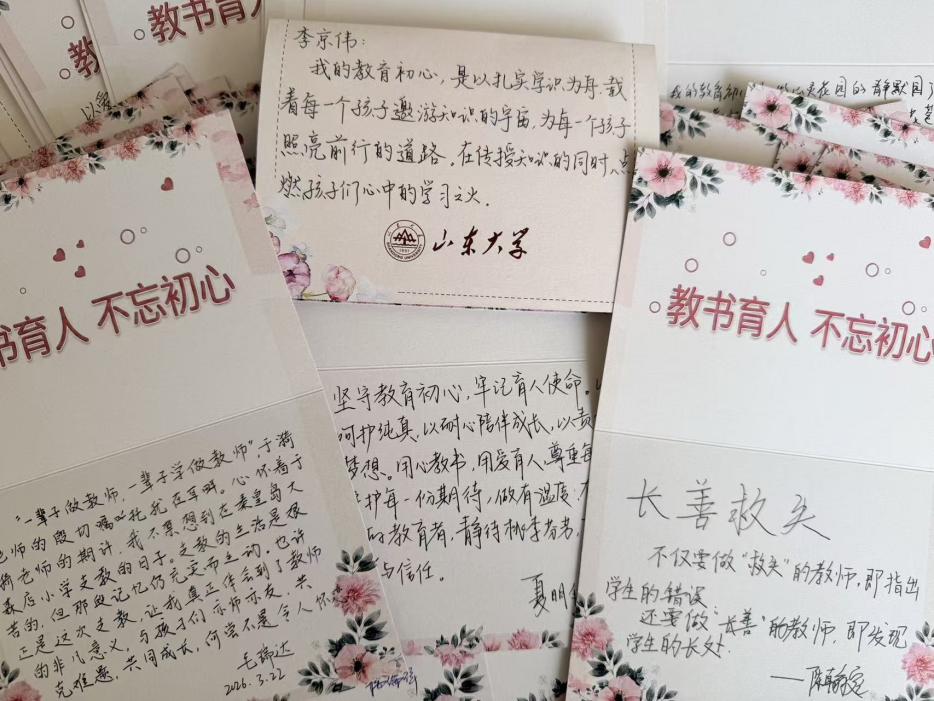 教书育人
教
李京伟：
我的教育初心，是以扎实学识为舟，载
着每一个孩子遨游知识的宇宙，为每一个孩子
照亮前行的道路，在传授知识的同时，点
燃孩子们心中的学习之火．
山东大学
1901
书育人 不忘初心
“一辈子做教师，一辈子学做教师”，于漪
老师的殷切嘱咐托我在耳畔。心怀着于
漪老师的期许，我不禁想到在秦皇岛大
森店小学支教的日子。支教的生活是艰
苦的，但那段记忆仍充实而生动。也许
正是这次支教，让我真正体会到了教师
的非凡意义，与孩子们亦师亦友，共
克难题，共同成长，何尝不是令人怀
毛瑞达
2026.3.22
坚守教育初心，牢记育人使命。
呵护纯真，以耐心陪伴成长，以责
梦想。用心教书，用爱育人，尊重每
护每一份期待，做有温度、
的教育者，静待桃李芬芳，
与信任。
夏明
教书育人 不忘初心
长善救失
不仅要做“救失”的教师，即指出
学生的错误
还要做“长善”的教师，即发现
学生的长处．
——陈翰